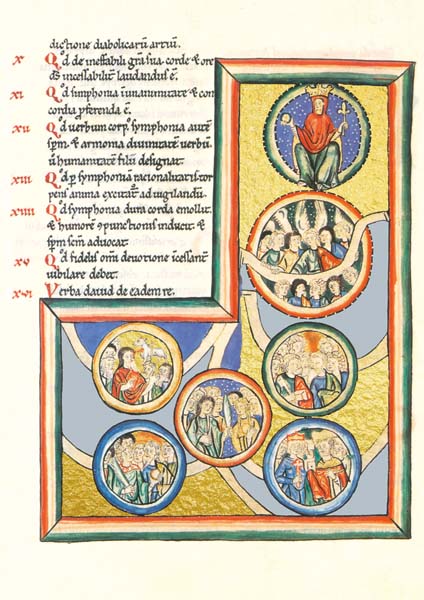 dictione diabolicarū artiū.
x Qd de ineffabili gr̄a sua corde & ore
ds̄ incessabilit̄ laudandus ē.
xi Qd simphonia ī unanimitate & con
cordia p̄ferenda ē.
xii Qd verbum corp' symphonia autē
sp̄m. & armonia divinitatē verbū
ū humanitatē filii designat.
xiii Qd p symphoniā rationalitatis tor
pens anima excitat' ad uigilandū.
xiiii Qd symphonia dura corda emollit.
& humorē cōpunctionis inducit. &
sp̄m sc̄m advocat.
xv Qd fidelis omī devotione īcessant'
iubilare debet.
xvi Verba david de eadem re.